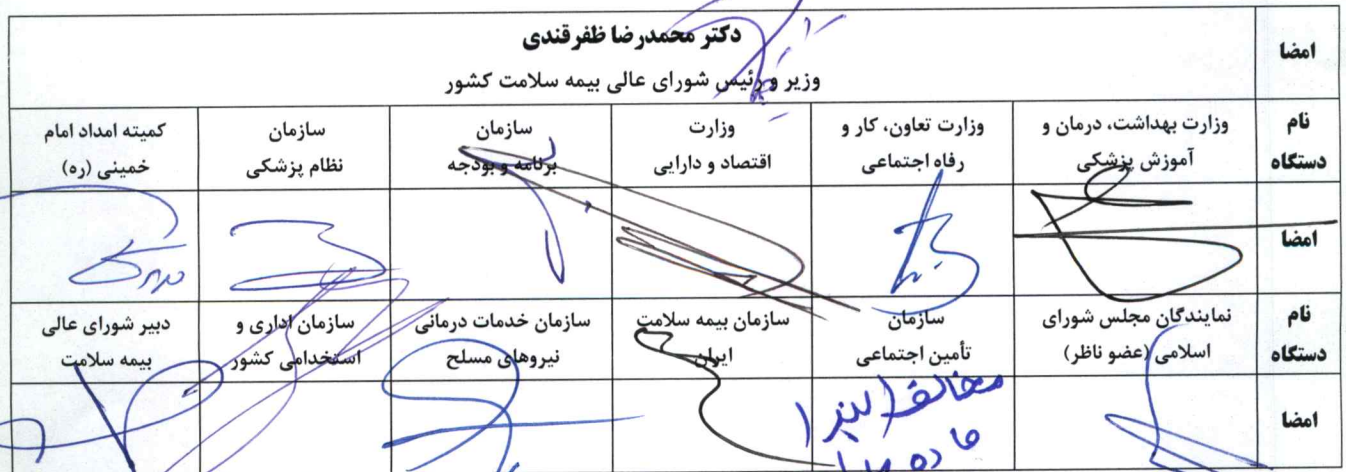 امضا
دکتر محمدرضا ظفرقندی
وزیر و رئیس شورای عالی بیمه سلامت کشور
نام دستگاه
وزارت بهداشت، درمان و
آموزش پزشکی
وزارت تعاون، کار و
رفاه اجتماعی
وزارت
اقتصاد و دارایی
سازمان
برنامه و بودجه
سازمان
نظام پزشکی
کمیته امداد امام
خمینی (ره)
امضا
نام دستگاه
نمایندگان مجلس شورای
اسلامی (عضو ناظر)
سازمان
تأمین اجتماعی
سازمان بیمه سلامت
ایران
سازمان خدمات درمانی
نیروهای مسلح
سازمان اداری و
استخدامی کشور
دبیر شورای عالی
بیمه سلامت
امضا
مخالف
ماده